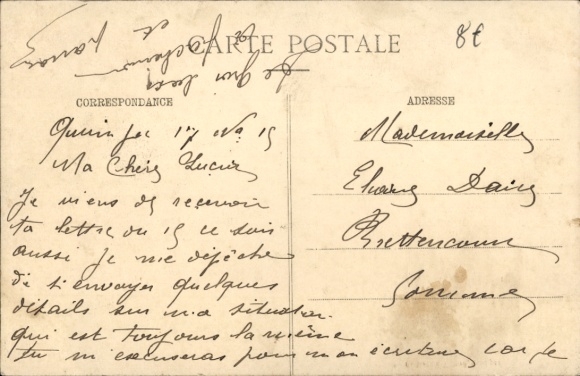 CARTE POSTALE
8€
CORRESPONDANCE
ADRESSE
17 Nov 15
Ma Chère Lucie
Je viens de recevoir
ta lettre du 15 ce soir
aussi je me dépêche
de t'envoyer quelques
détails sur ma situation
qui est toujours la même
tu m'excuseras pour mon écriture car je
Mademoiselle
Dairy
Bettencourt
Somme